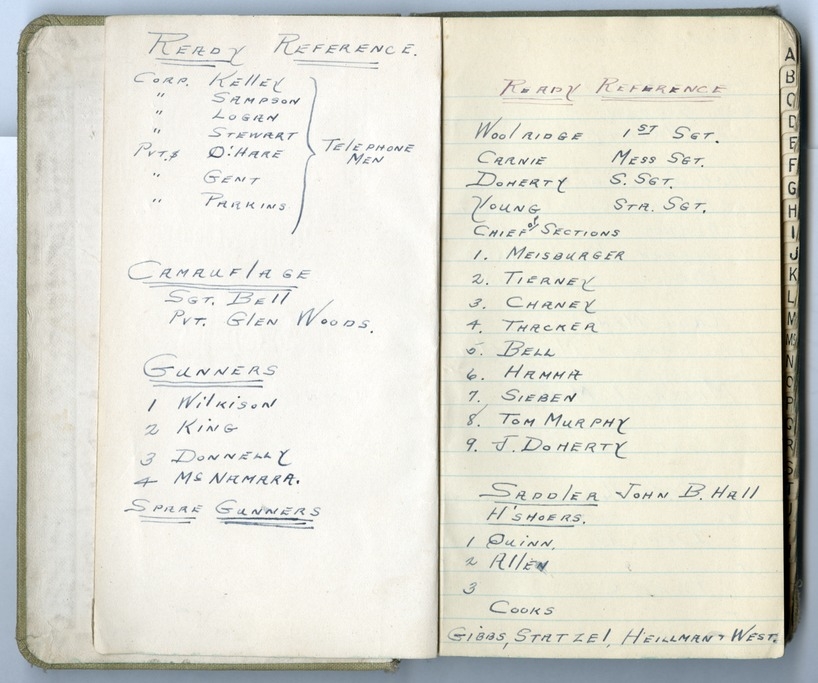 READY REFERENCE.
CORP. KELLEY
" SAMPSON
" LOGAN
" STEWART
PVT.$ O'HARE
" GENT
" PARKINS
TELEPHONE
MEN
CAMAUFLAGE
SGT. BELL
PVT. GLEN WOODS.
GUNNERS
1 WILKISON
2 KING
3 DONNELLY
4 McNAMARA.
SPARE GUNNERS
READY REFERENCE
WOOLRIDGE 1ST SGT.
CARNIE MESS SGT.
DOHERTY S. SGT.
YOUNG STA. SGT.
CHIEF of SECTIONS
1. MEISBURGER
2. TIERNEY
3. CHANEY
4. THACKER
5. BELL
6. HAMMA
7. SIEBEN
8. TOM MURPHY
9. J. DOHERTY
SADDLER JOHN B. HALL
H'SHOERS.
1 QUINN.
2 ALLEN
3
COOKS
GIBBS, STATZEL, HEILLMAN + WEST.
A
B
C
D
E
F
G
H
I
J
K
L
M
Mc
N
O
P
Q
R
S
T